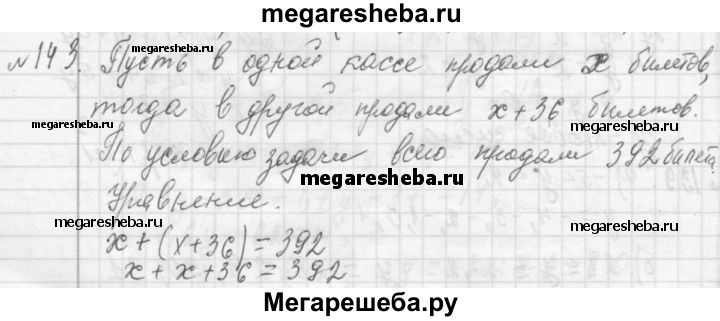 megaresheba.ru
№143. Пусть в одной кассе продали x билетов,
megaresheba.ru
тогда в другой продали x+36 билетов.
megaresheba.ru
megaresheba.ru
По условию задачи всего продали 392 билет.
megaresheba.ru
Уравнение.
megaresheba.ru
megaresheba.ru
x+(x+36)=392
x+x+36=392
Мегарешеба.ру